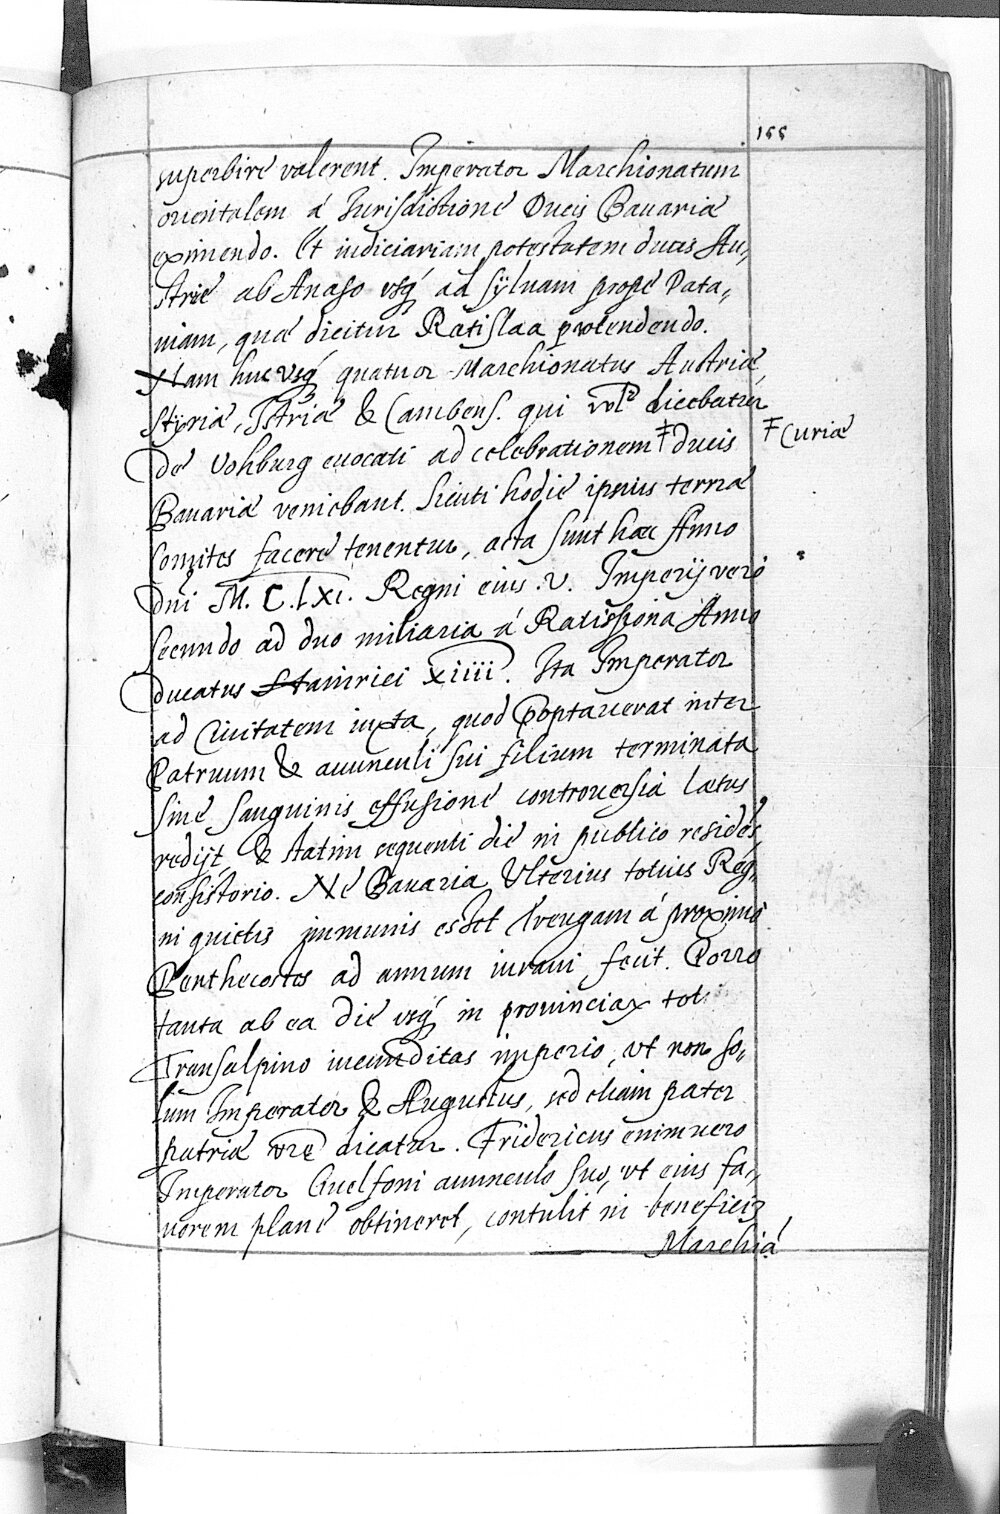 155
superbire valerent. Imperator Marchionatum
orientalem á Iurisdictione Ducis Bauariæ
eximendo. Et iudiciariam potestatem ducis Au„
striæ ab Anaso vsq́ ad sÿluam propé Pata„
uiam, quæ dicitur Ratislaa protendendo.
Nam huc vsq́ quatuor Marchionatus Austriæ,
Stÿriæ, Istriæ & Cambens. qui dicebatur
De Vohburg euocati ad celebrationem Ŧ Ducis
Ŧ Curiæ
Bauariæ veniebant. Sicuti hodie ipsius terræ
comites facere tenentur, acta sunt hæc Anno
Dni M.C.LXI. Regni eius .V. Imperij veró
secundo ad duo miliaria á Ratispona Anno
Ducatus Hainrici XIIII. Ita Imperator
ad Ciuitatem iuxta, quod Poptauerat inter
Patruum & auunculi sui filium terminata
sine sanguinis effusione controuersia lætus
redijt, & statim sequenti die in publico residés
consistorio. Ne Bauaria Vlterius totius Reg„
ni quietis immunis esset Treugam á proxima
Penthecostes ad annum iurari fecit. Porro
tanta ab ea die vsq́ in
Transalpino iucunditas imperio, vt non so„
lum Imperator & Augustus, sed etiam pater
patriæ vre dicatur. Fridericus enimuero
Imperator Guelfoni auunculo suo, vt eius fa„
uorem plané obtineret, contulit in
Marchiá